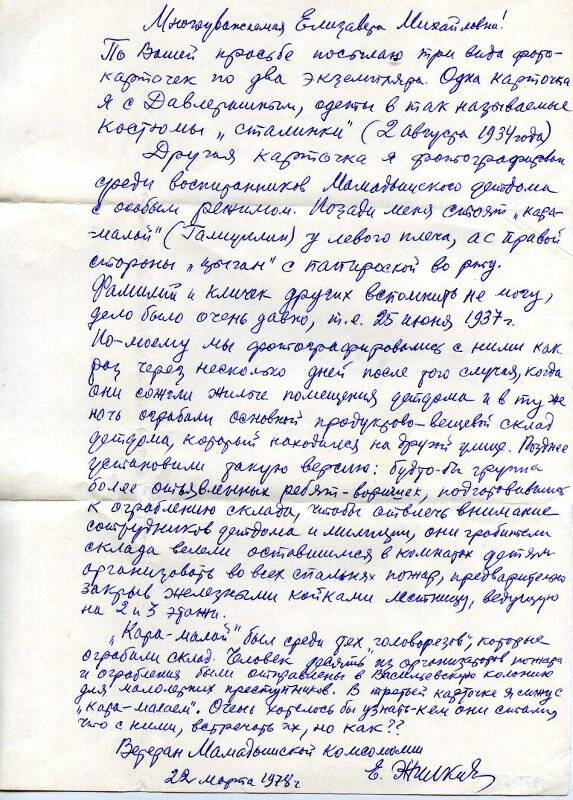 Многоуважаемая Елизавета Михайловна!
По Вашей просьбе посылаю три вида фото-
карточек по два экземпляра. Одна карточка
я с Давлетшиным, одеты в так называемые
костюмы „сталинки" (2 августа 1934 года)
Другая карточка я фотографирован
среди воспитанников Мамадышского детдома
с особым режимом. Позади меня стоят „кара-
-малай" (Гамиуллин) у левого плеча, а с правой
стороны „цыган" с папироской во рту.
Фамилий и кличек других вспомнить не могу,
дело было очень давно, т.е. 25 июня 1937 г.
По-моему мы фотографировались с ними как
раз через несколько дней после того случая, когда
они сожгли жилые помещения детдома и в ту же
ночь ограбали основной продуктово-вещевой склад
детдома, который находился на другой улице. Позднее
установили такую версию: будто-бы группа
более отъявленных ребят-воришек, подготовившись
к ограблению склада, чтобы отвлечь внимание
сотрудников детдома и милиции, они грабители
склада велели оставшимся в комнатах детям
организовать во всех спальнях пожар, предварительно
закрыв железными койками лестницу, ведущую
на 2 и 3 этажи.
„Кара-малай" был среди тех „головорезов", которые
ограбали склад. Человек десять из организаторов пожара
и ограбления были отправлены в Васильевскую колонию
для малолетних преступников. В третьей карточке я снижусь
„кара-малаем". Очень хотелось бы узнать-кем они стали,
что с ними, встречать их, но как??
Ветеран Мамадышской комсомолии
22 марта 1978 г. Е. Жилкин